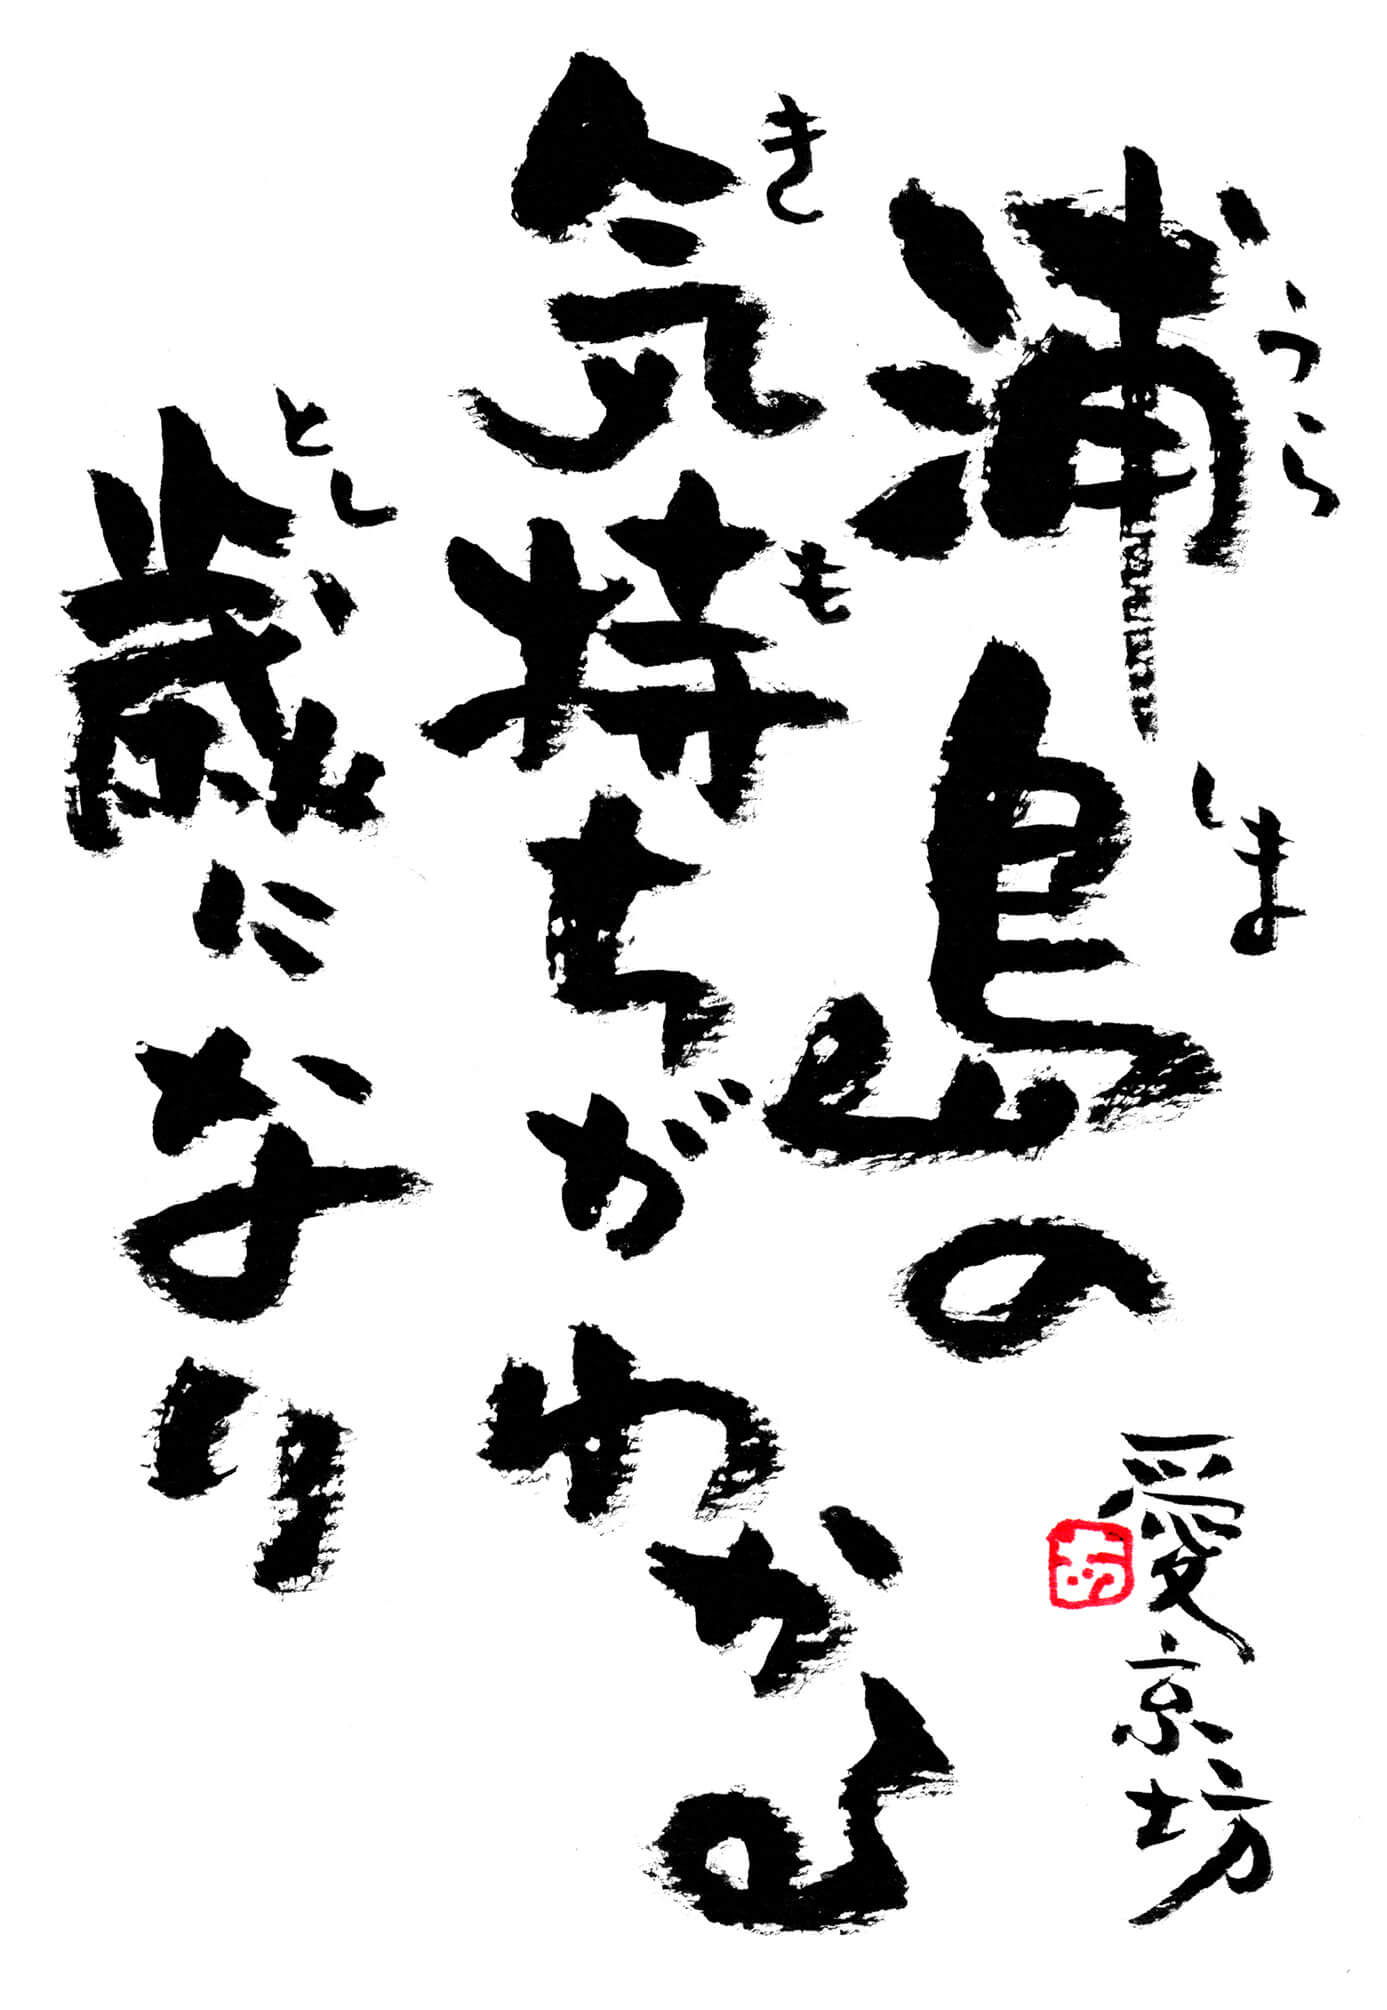 浦島の
うらしま
気持ちがわかる
きも
歳になり
とし
愛京坊
坊